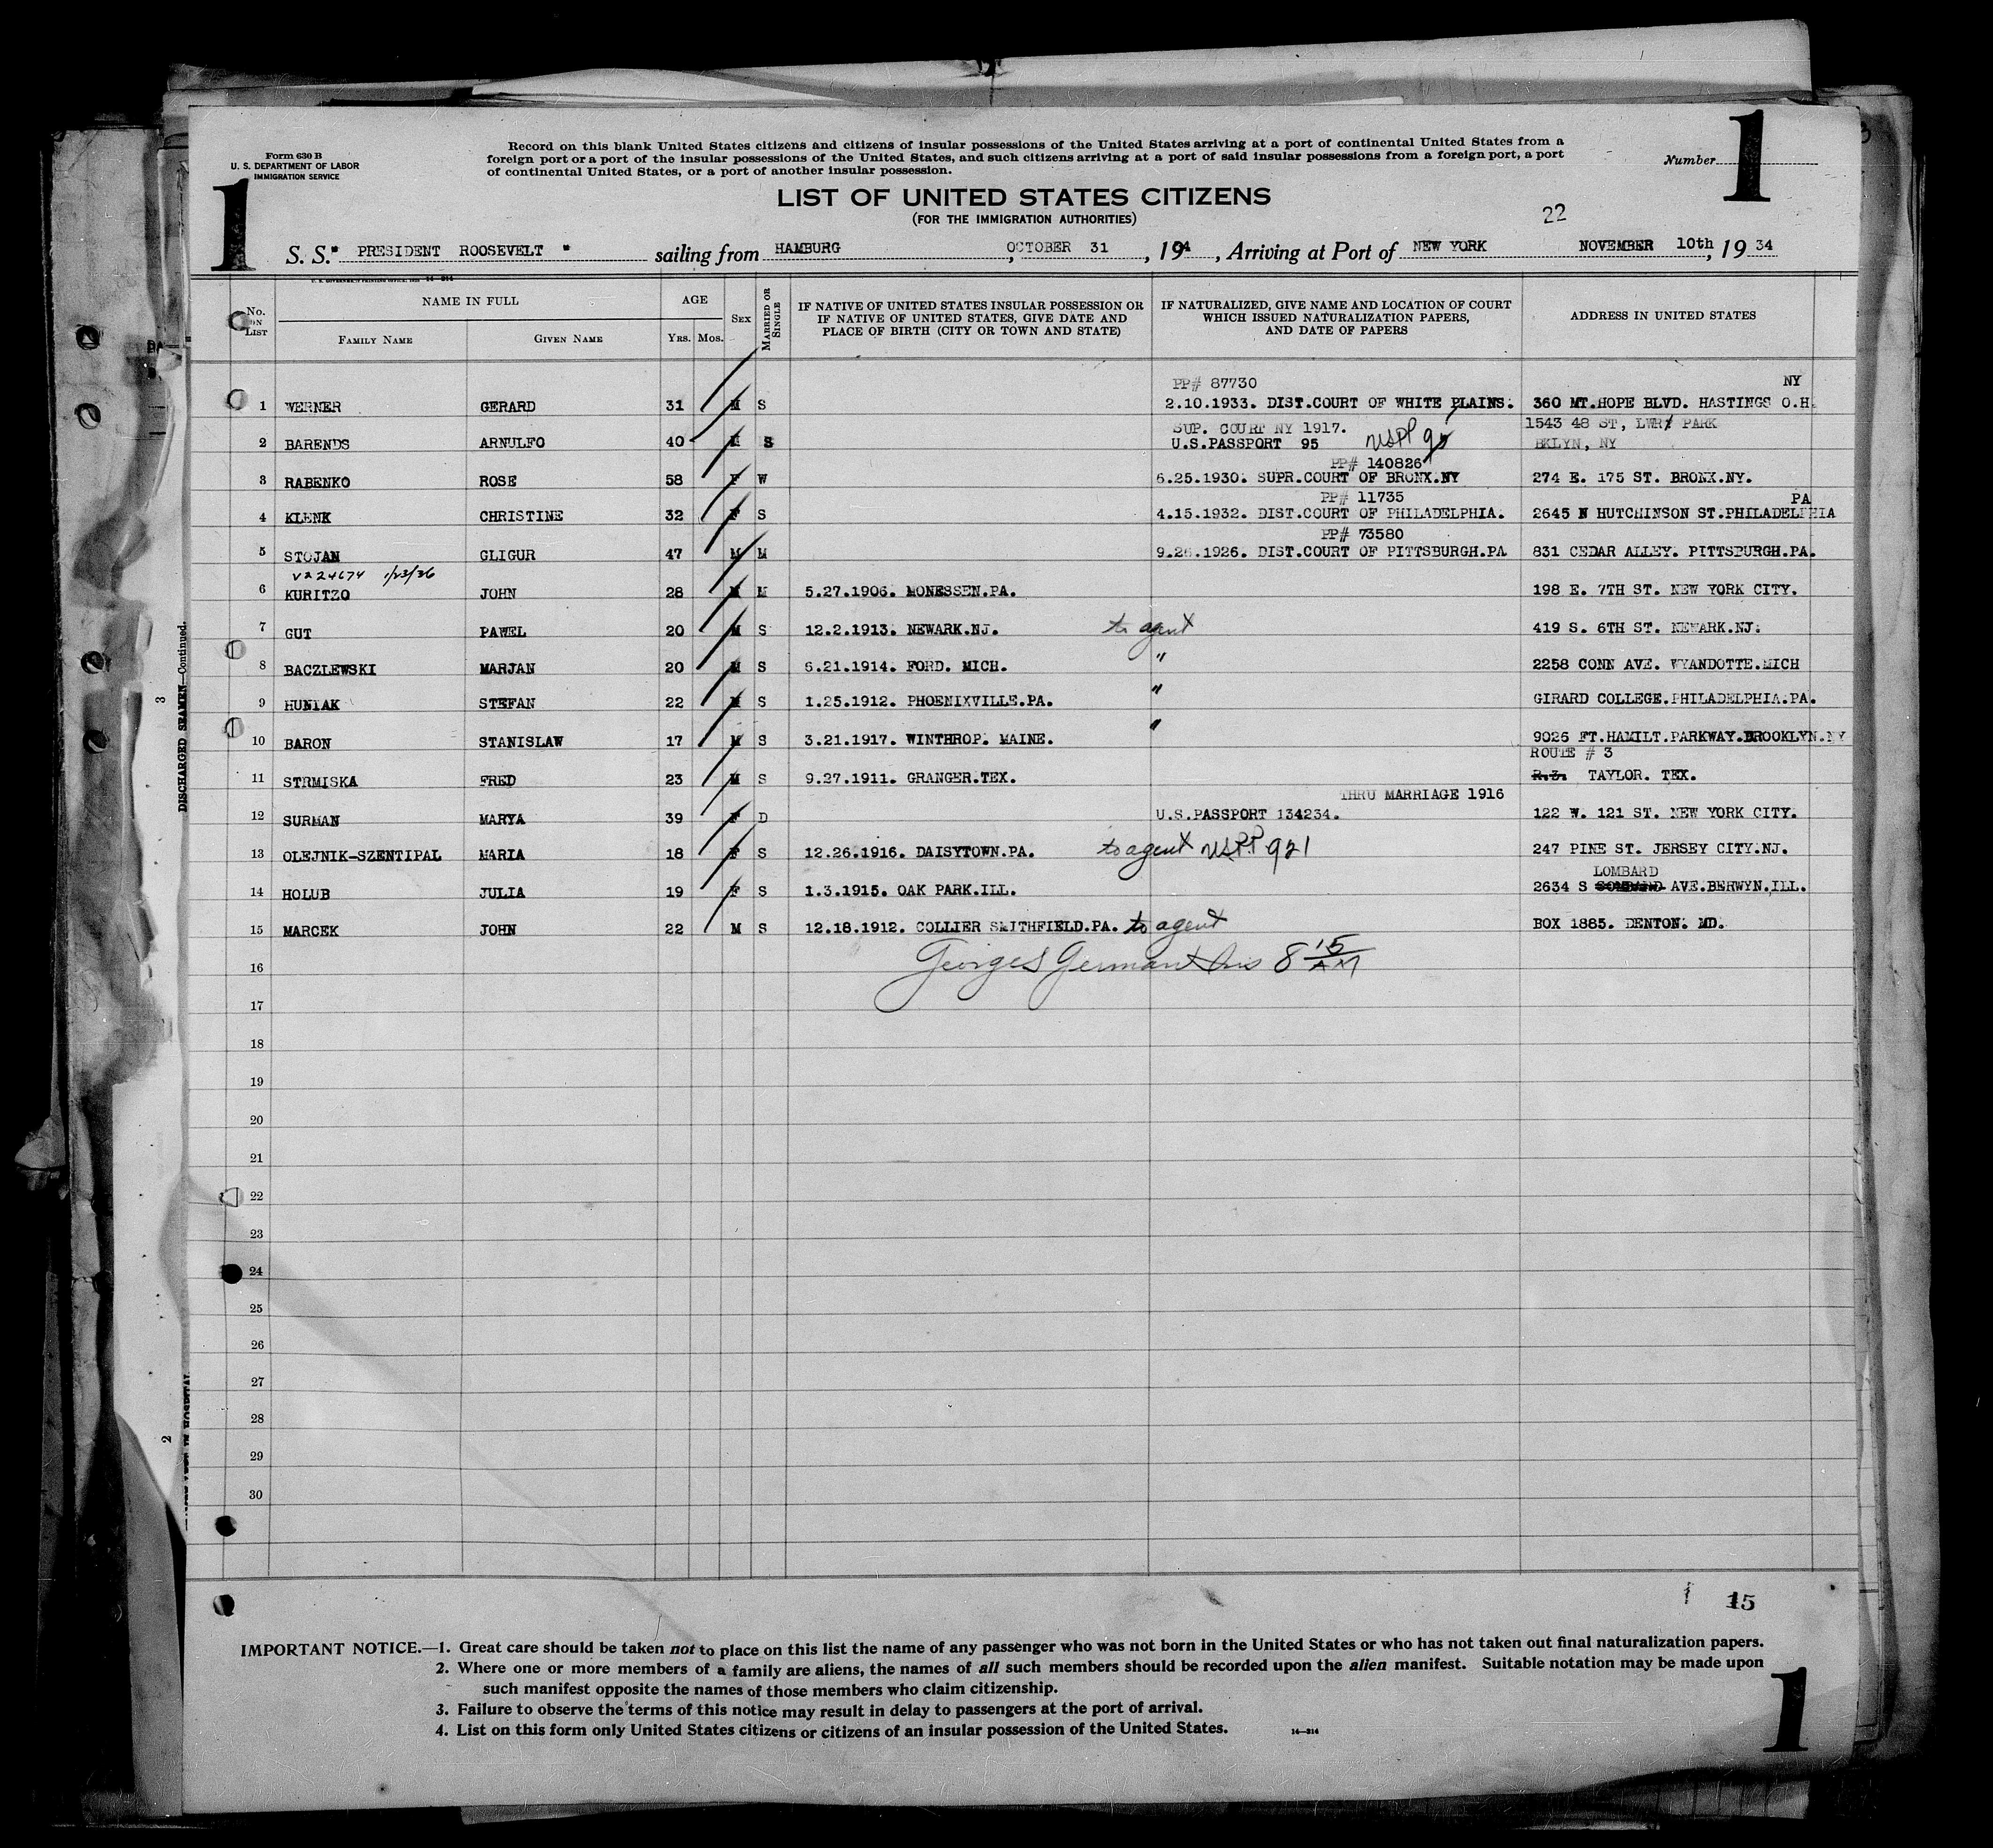 Form 630 B
U. S. DEPARTMENT OF LABOR
IMMIGRATION SERVICE
Record on this blank United States citizens and citizens of insular possessions of the United States arriving at a port of continental United States from a
foreign port or a port of the insular possessions of the United States, and such citizens arriving at a port of said insular possessions from a foreign port, a port
of continental United States, or a port of another insular possession.
Number 1
1
LIST OF UNITED STATES CITIZENS
(FOR THE IMMIGRATION AUTHORITIES)
22
S. S." PRESIDENT ROOSEVELT " sailing from HAMBURG, OCTOBER 31, 194, Arriving at Port of NEW YORK NOVEMBER 10th, 19 34
No. ON LIST
NAME IN FULL
FAMILY NAME
GIVEN NAME
AGE
YRS. MOS.
SEX
MARRIED OR SINGLE
IF NATIVE OF UNITED STATES INSULAR POSSESSION OR
IF NATIVE OF UNITED STATES, GIVE DATE AND
PLACE OF BIRTH (CITY OR TOWN AND STATE)
IF NATURALIZED, GIVE NAME AND LOCATION OF COURT
WHICH ISSUED NATURALIZATION PAPERS,
AND DATE OF PAPERS
ADDRESS IN UNITED STATES
PP# 87730 NY
1 WERNER GERARD 31 M S 2.10.1933. DIST.COURT OF WHITE PLAINS. 360 MT.HOPE BLVD. HASTINGS O.H.
SUP. COURT NY 1917. 1543 48 ST, LWR PARK
2 BARENDS ARNULFO 40 M S U.S.PASSPORT 95 USPP 95 BKLYN, NY
PP# 140826
3 RABENKO ROSE 58 F W 6.25.1930. SUPR.COURT OF BRONX.NY 274 E. 175 ST. BRONX.NY.
PP# 11735 PA
4 KLENK CHRISTINE 32 F S 4.15.1932. DIST.COURT OF PHILADELPHIA. 2645 N HUTCHINSON ST.PHILADELPHIA
PP# 73580
5 STOJAN GLIGUR 47 M M 9.26.1926. DIST.COURT OF PITTSBURGH.PA 831 CEDAR ALLEY. PITTSBURGH.PA.
V224674 1/23/36
6 KURITZO JOHN 28 M M 5.27.1906. MONESSEN.PA. 198 E. 7TH ST. NEW YORK CITY.
7 GUT PAWEL 20 M S 12.2.1913. NEWARK.NJ. to agent 419 S. 6TH ST. NEWARK.NJ.
8 BACZLEWSKI MARJAN 20 M S 6.21.1914. FORD. MICH. " 2258 CONN AVE. WYANDOTTE.MICH
9 HUNIAK STEFAN 22 M S 1.25.1912. PHOENIXVILLE.PA. " GIRARD COLLEGE.PHILADELPHIA.PA.
10 BARON STANISLAW 17 M S 3.21.1917. WINTHROP. MAINE. " 9026 FT.HAMILT.PARKWAY.BROOKLYN.NY
ROUTE # 3
11 STRMISKA FRED 23 M S 9.27.1911. GRANGER.TEX. R.3. TAYLOR. TEX.
THRU MARRIAGE 1916
12 SURMAN MARYA 39 F D U.S.PASSPORT 134234. 122 W. 121 ST. NEW YORK CITY.
13 OLEJNIK-SZENTIPAL MARIA 18 F S 12.26.1916. DAISYTOWN.PA. to agent USPP 921 247 PINE ST. JERSEY CITY.NJ.
LOMBARD
14 HOLUB JULIA 19 F S 1.3.1915. OAK PARK.ILL. 2634 S AVE.BERWYN.ILL.
15 MARCEK JOHN 22 M S 12.18.1912. COLLIER SMITHFIELD.PA. to agent BOX 1885. DENTON. MD.
16 Georges German 8 15 AM
17
18
19
20
21
22
23
24
25
26
27
28
29
30
15
IMPORTANT NOTICE.—1. Great care should be taken not to place on this list the name of any passenger who was not born in the United States or who has not taken out final naturalization papers.
2. Where one or more members of a family are aliens, the names of all such members should be recorded upon the alien manifest. Suitable notation may be made upon
such manifest opposite the names of those members who claim citizenship.
3. Failure to observe the terms of this notice may result in delay to passengers at the port of arrival.
4. List on this form only United States citizens or citizens of an insular possession of the United States. 14—214
1
DISCHARGED SEAMEN—Continued.
3
2